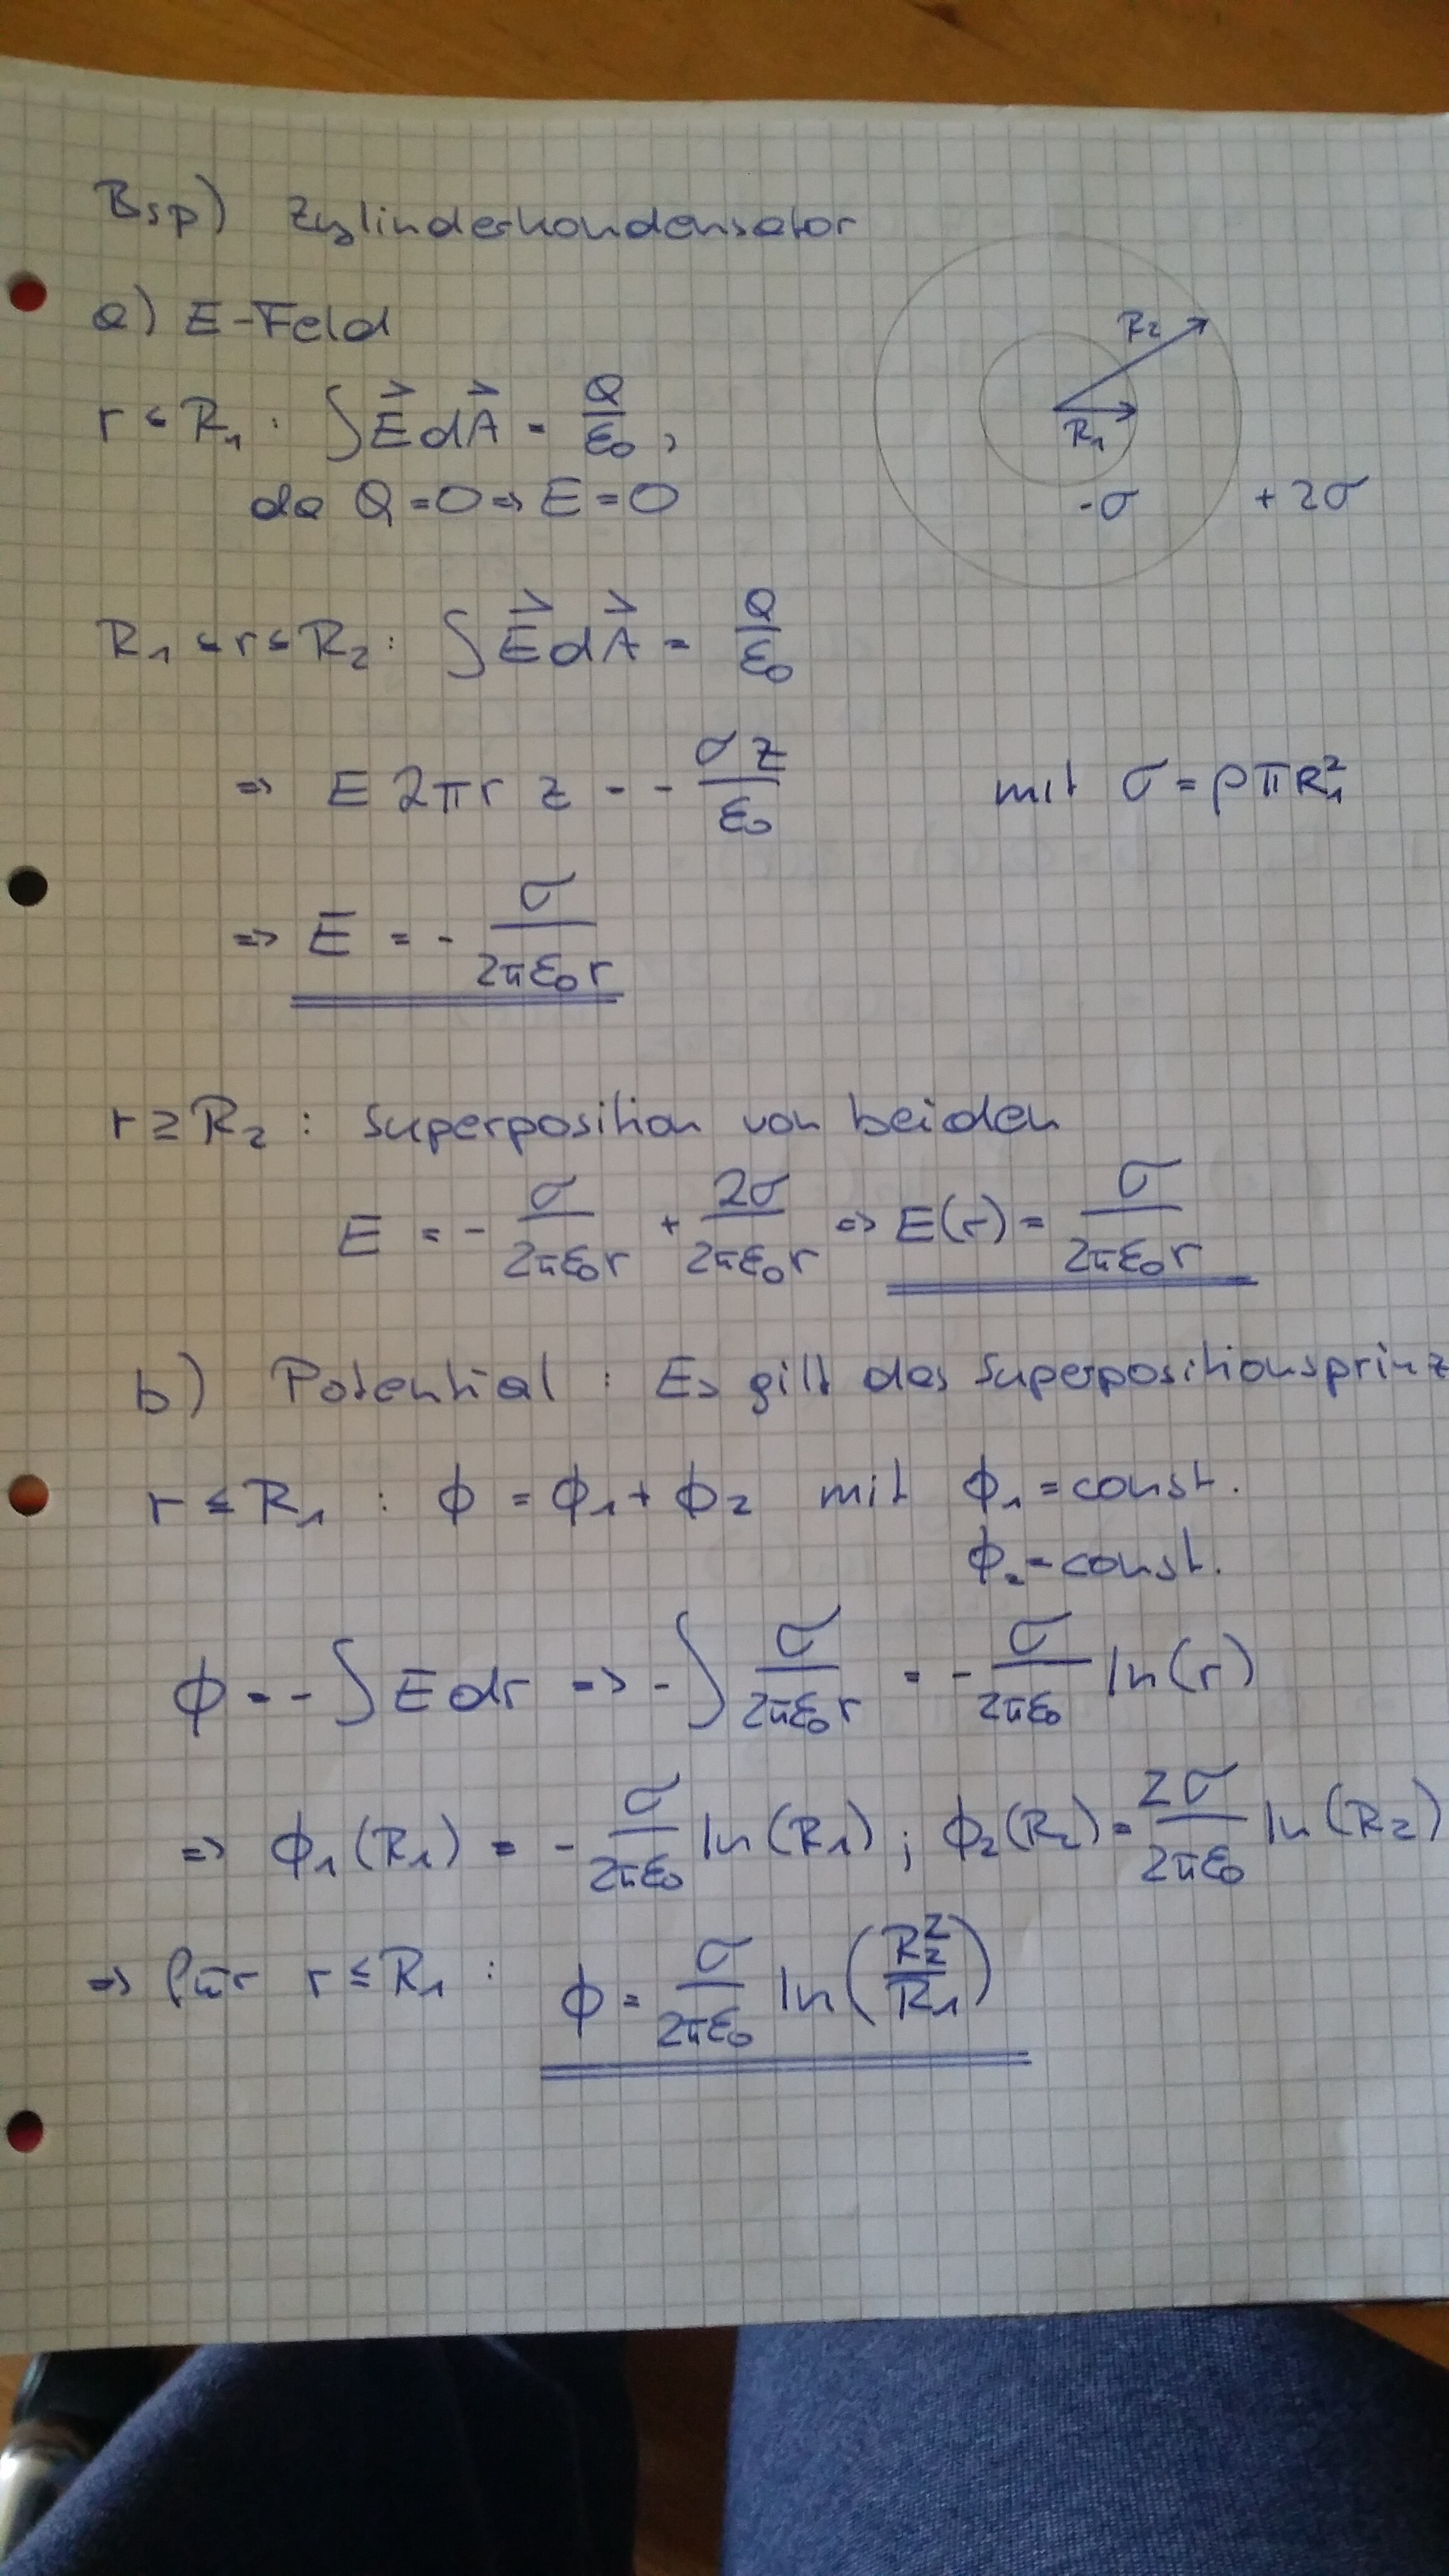 Bsp) Zylinderkondensator
a) E-Feld
R₂
R₁
-σ +2σ
r < R₁ : ∫ E⃗ dA⃗ = Q/ε₀ ,
da Q = 0 => E = 0
R₁ ≤ r ≤ R₂ : ∫ E⃗ dA⃗ = Q/ε₀
=> E 2πr z = - σz/ε₀ mit σ = ρπR₁²
=> E = - σ/(2πε₀r)
r ≥ R₂ : Superposition von beiden
E = - σ/(2πε₀r) + 2σ/(2πε₀r) => E(r) = σ/(2πε₀r)
b) Potential : Es gilt das Superpositionsprinz
r ≤ R₁ : ϕ = ϕ₁ + ϕ₂ mit ϕ₁ = const.
ϕ₂ = const.
ϕ = - ∫ E dr => - ∫ σ/(2πε₀r) = - σ/(2πε₀) ln(r)
=> ϕ₁(R₁) = - σ/(2πε₀) ln(R₁) ; ϕ₂(R₂) = 2σ/(2πε₀) ln(R₂)
=> für r ≤ R₁ : ϕ = σ/(2πε₀) ln(R₂²/R₁)